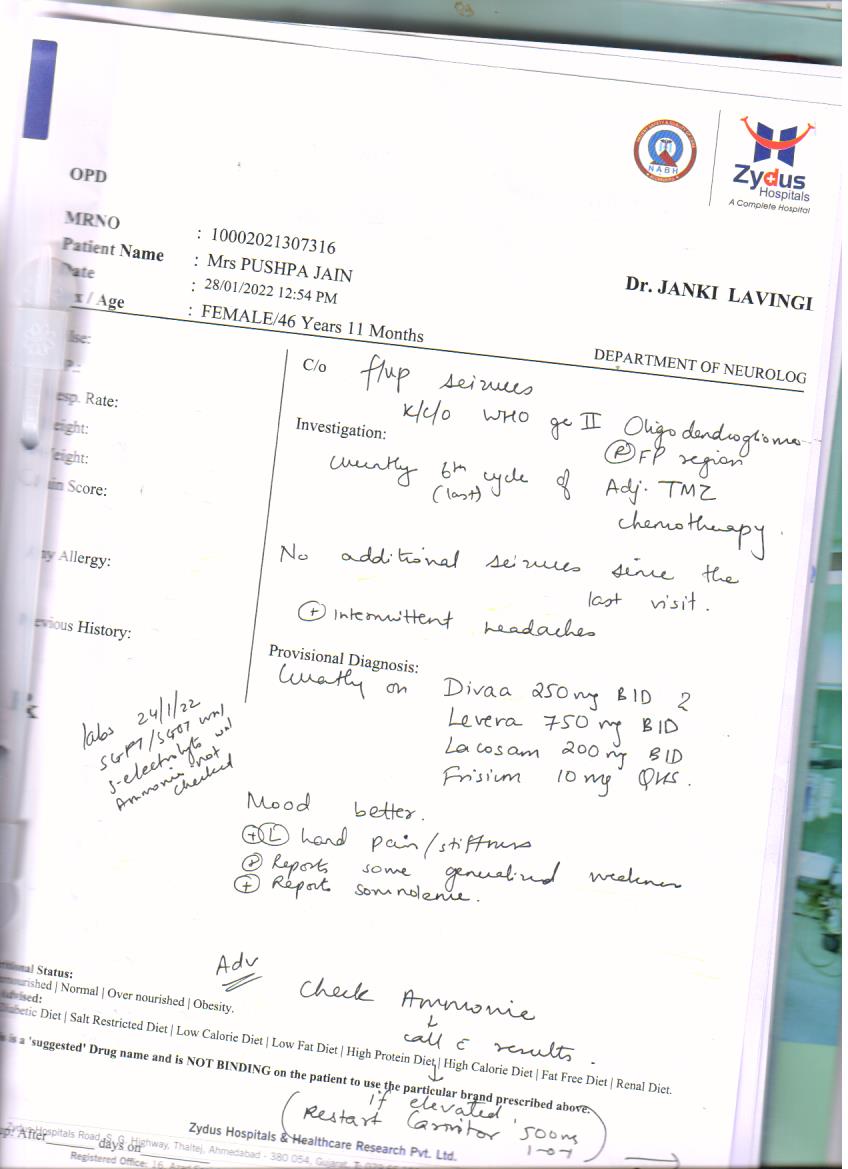 NABH
Zydus
Hospitals
A Complete Hospital
OPD
MRNO : 10002021307316
Patient Name : Mrs PUSHPA JAIN
ate : 28/01/2022 12:54 PM
x / Age : FEMALE/46 Years 11 Months
Dr. JANKI LAVINGI
DEPARTMENT OF NEUROLOG
lse:
P.:
esp. Rate:
eight:
eight:
in Score:
ny Allergy:
evious History:
C/o f/up seizures
K/c/o WHO gr II Oligodendroglioma
(R) FP region
Investigation:
Currently 6th cycle of Adj. TMZ
(last)
chemotherapy.
No additional seizures since the
last visit.
(+) Intermittent headaches
Provisional Diagnosis:
Currently on Divaa 250 mg BID 2
Levera 750 mg BID
Lacosam 200 mg BID
Frisium 10 mg QHS.
labs 24/1/22
SGPT/SGOT wnl
S-electrolyte wnl
Ammonia not
checked
Mood better.
(+) (L) hand pain/stiffness
(+) Reports some generalized weakness
(+) Reports somnolence.
Adv
Check Ammonia
↓
call c results.
↓
if elevated
(Restart Carnitor 500mg
1-0-1)
→
itional Status:
ernourished | Normal | Over nourished | Obesity.
Advised:
Diabetic Diet | Salt Restricted Diet | Low Calorie Diet | Low Fat Diet | High Protein Diet | High Calorie Diet | Fat Free Diet | Renal Diet.
is is a 'suggested' Drug name and is NOT BINDING on the patient to use the particular brand prescribed above.
up: After days on
Zydus Hospitals & Healthcare Research Pvt. Ltd.
Zydus Hospitals Road, S. G. Highway, Thaltej, Ahmedabad - 380 054, Gujarat,
Registered Office: 16,